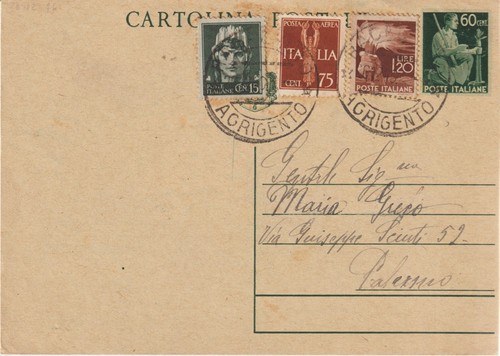 CARTOLINA
POSTE ITALIANE CENT 15
POSTA AEREA
ITALIA
CENT 75
LIRE 1,20
POSTE ITALIANE
60 CENT
POSTE ITALIANE
AGRIGENTO
AGRIGENTO
Gentile Sig.na
Maria Greco
Via Guiseppe Sciuti 52
Palermo